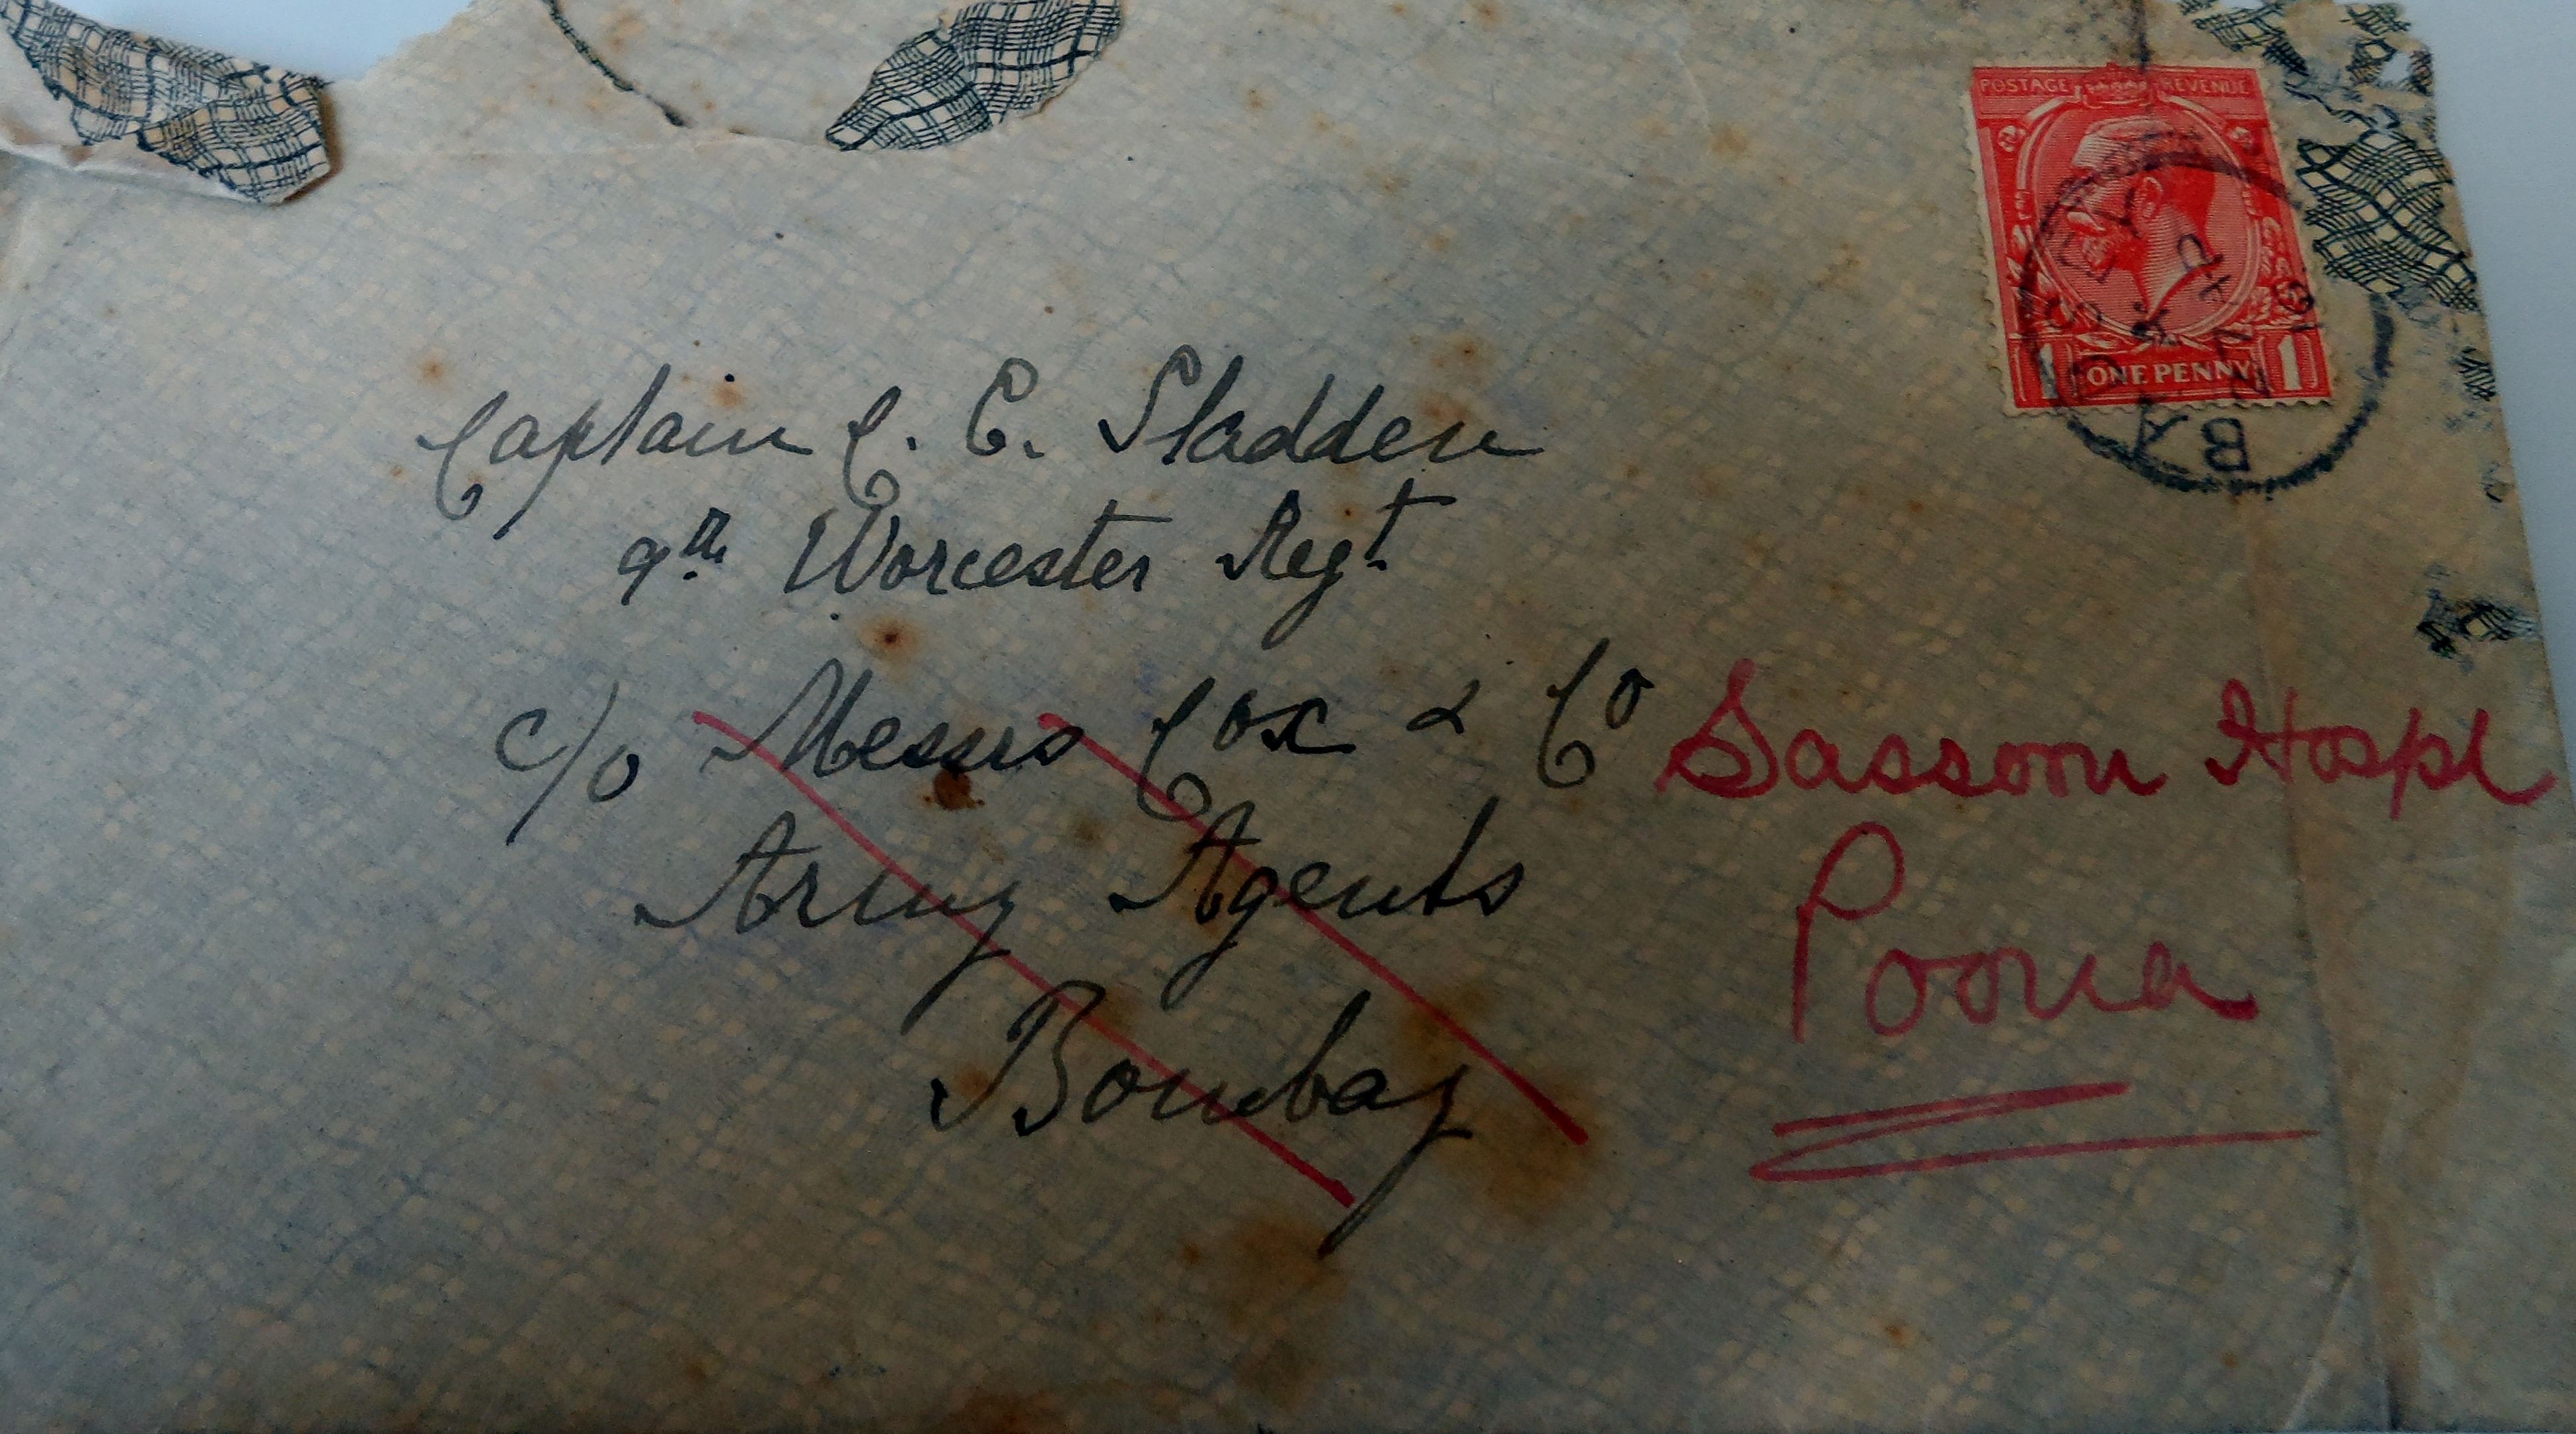 POSTAGE REVENUE
ONE PENNY
1 1
Captain C. E. Sladden
9th Worcester Regt.
c/o Messrs Cox & Co
Army Agents
Bombay
Sassoon Hospl
Poona